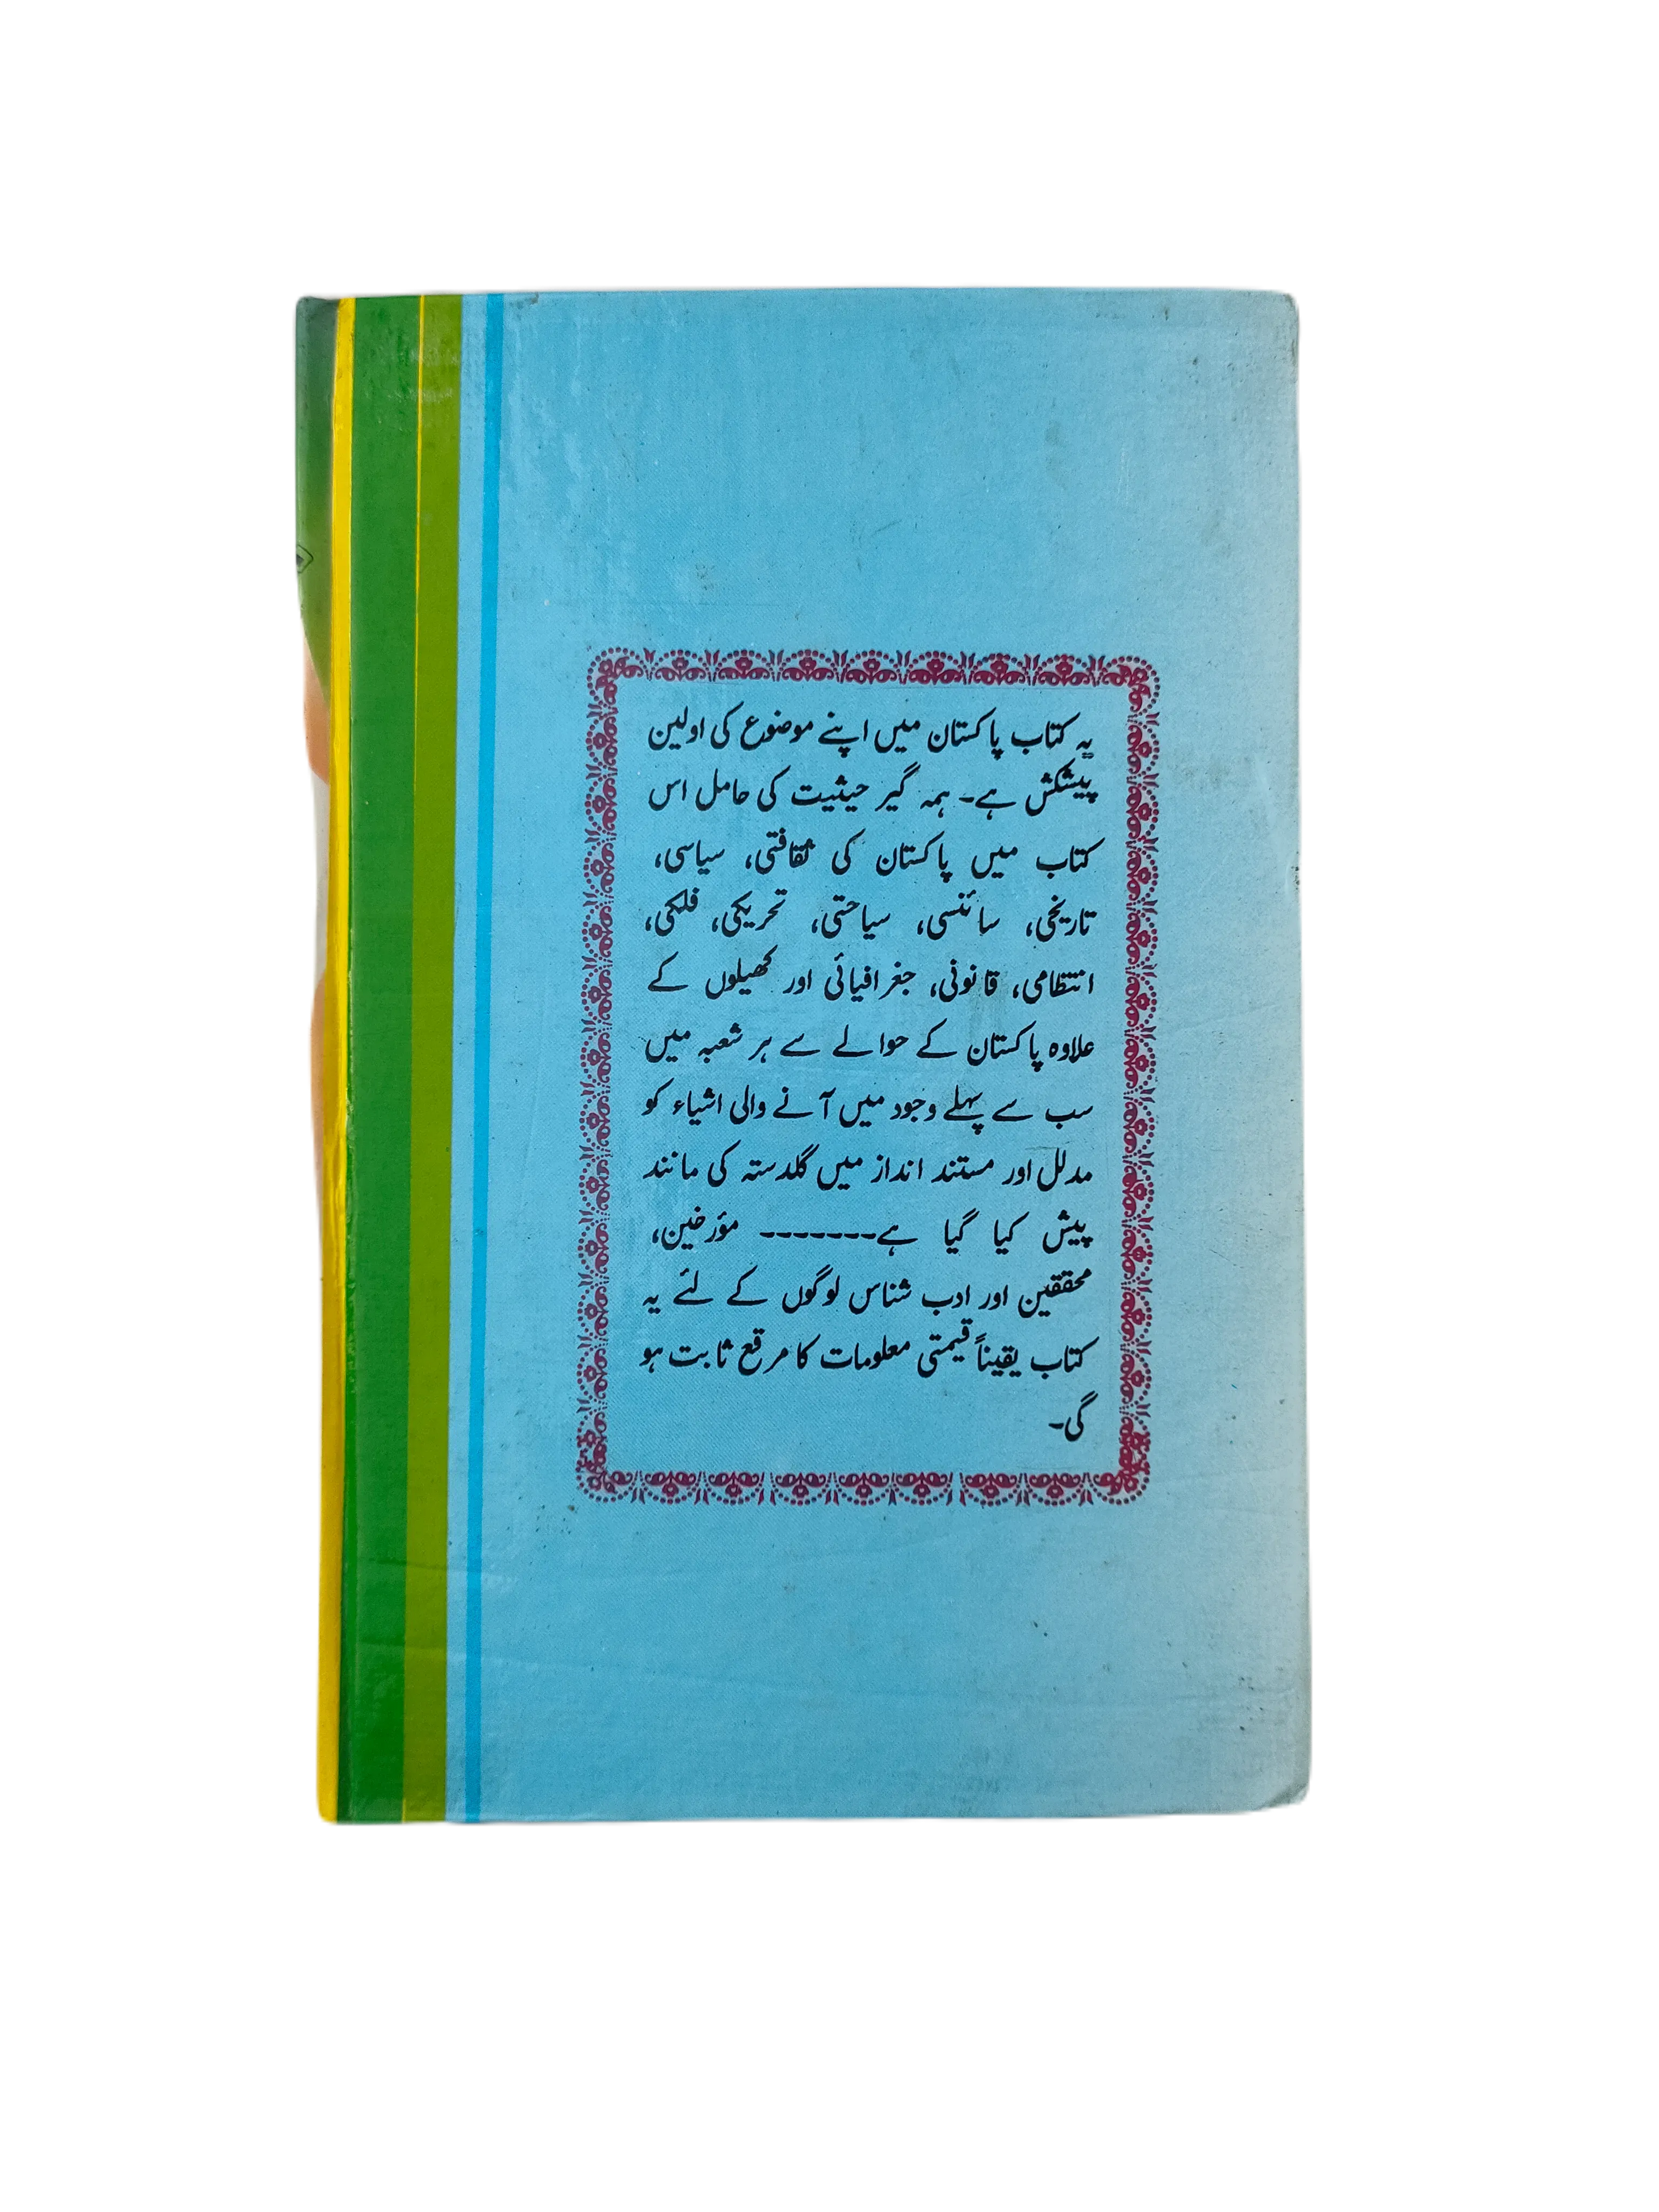 یہ کتاب پاکستان میں اپنے موضوع کی اولین
پیشکش ہے۔ ہمہ گیر حیثیت کی حامل اس
کتاب میں پاکستان کی ثقافتی، سیاسی،
تاریخی، سائنسی، سیاحتی، تحریکی، فلکی،
انتظامی، قانونی، جغرافیائی اور کھیلوں کے
علاوہ پاکستان کے حوالے سے ہر شعبہ میں
سب سے پہلے وجود میں آنے والی اشیاء کو
مدلل اور مستند انداز میں گلدستہ کی مانند
پیش کیا گیا ہے------- مؤرخین،
محققین اور ادب شناس لوگوں کے لئے یہ
کتاب یقیناً قیمتی معلومات کا مرقع ثابت ہو
گی۔